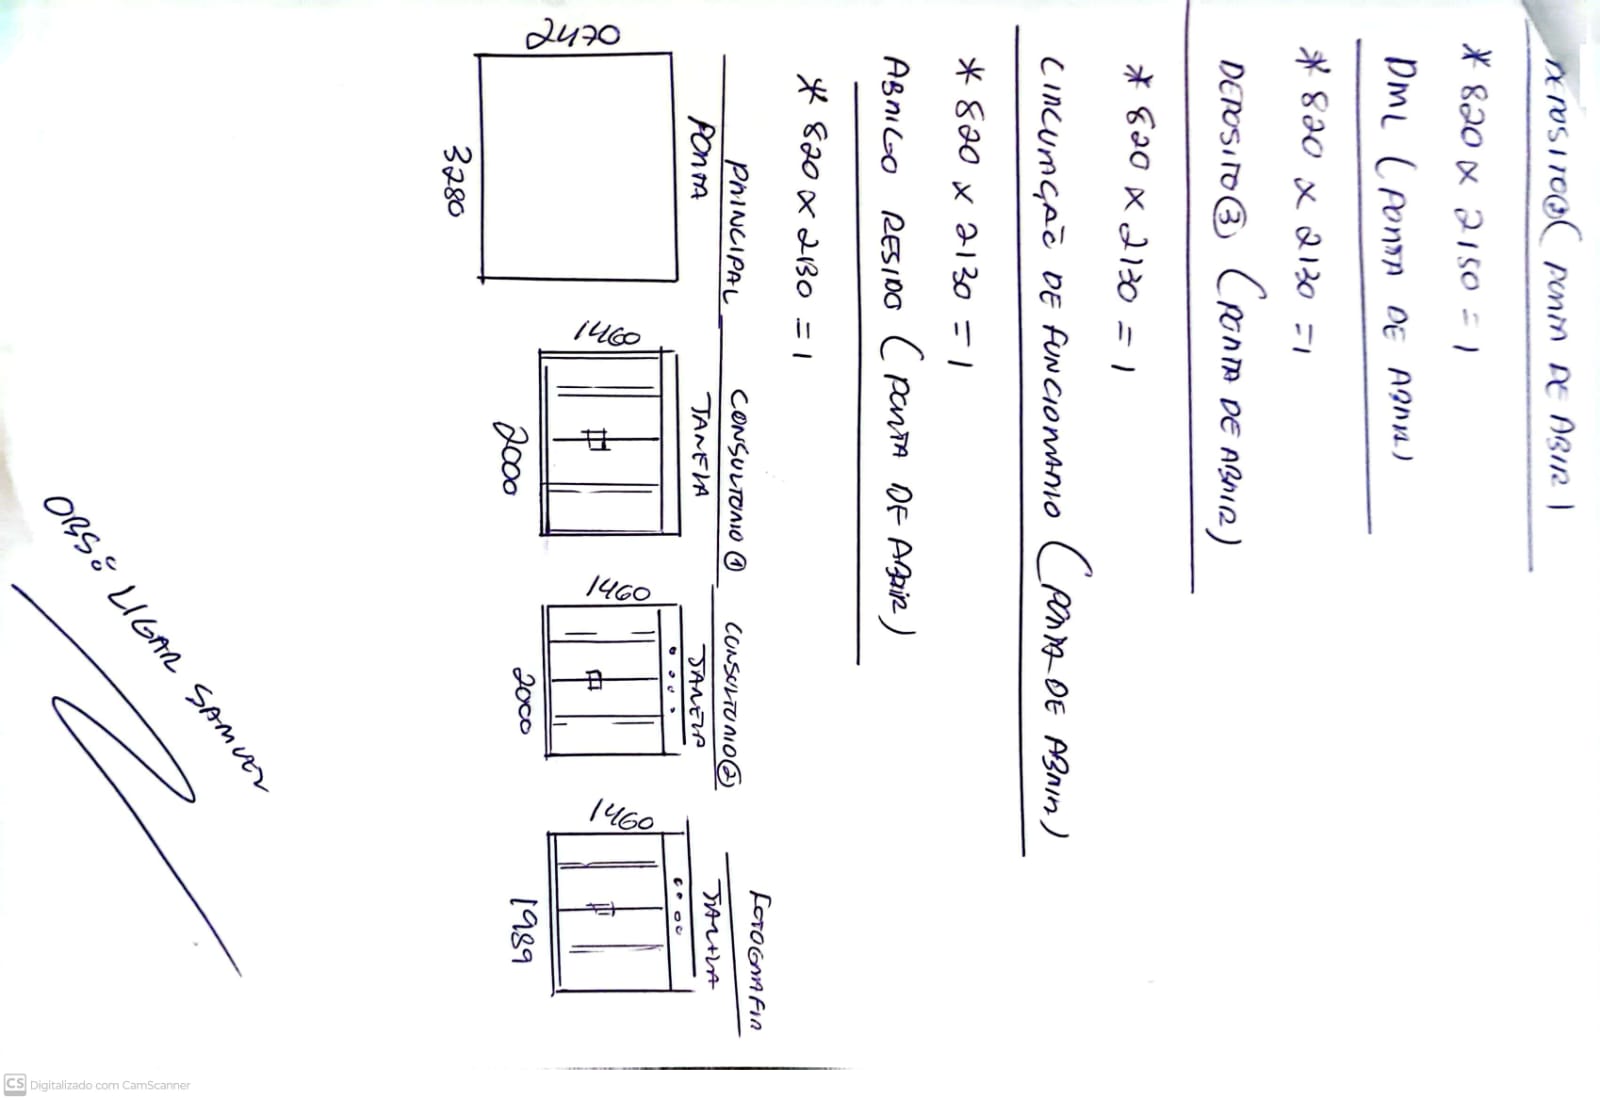 DEPOSITO② (PORTA DE ABIR)
* 820 x 2150 = 1
DML (PORTA DE ABRIR)
* 820 x 2130 = 1
DEPOSITO③ (PORTA DE ABRIR)
* 820 x 2130 = 1
CIRCULAÇÃO DE FUNCIONARIO (PORTA DE ABRIR)
* 820 x 2130 = 1
ABRIGO RESIDO (PORTA DE ABRIR)
* 820 x 2130 = 1
PRINCIPAL
PORTA
2470
3280
CONSULTORIO ①
JANELA
1460
2000
CONSULTORIO ②
JANELA
1460
2000
FOTOGRAFIA
JANELA
1460
1989
OBS: LIGAR SAMUEL
CS Digitalizado com CamScanner